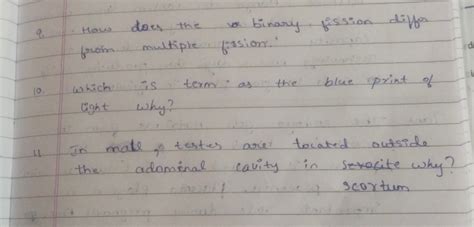 9. How does the binary fission differ
from multiple fission.
10. which is term as the blue print of
light why?
11. In male, testes are located outside
the adominal cavity in why?
scortum